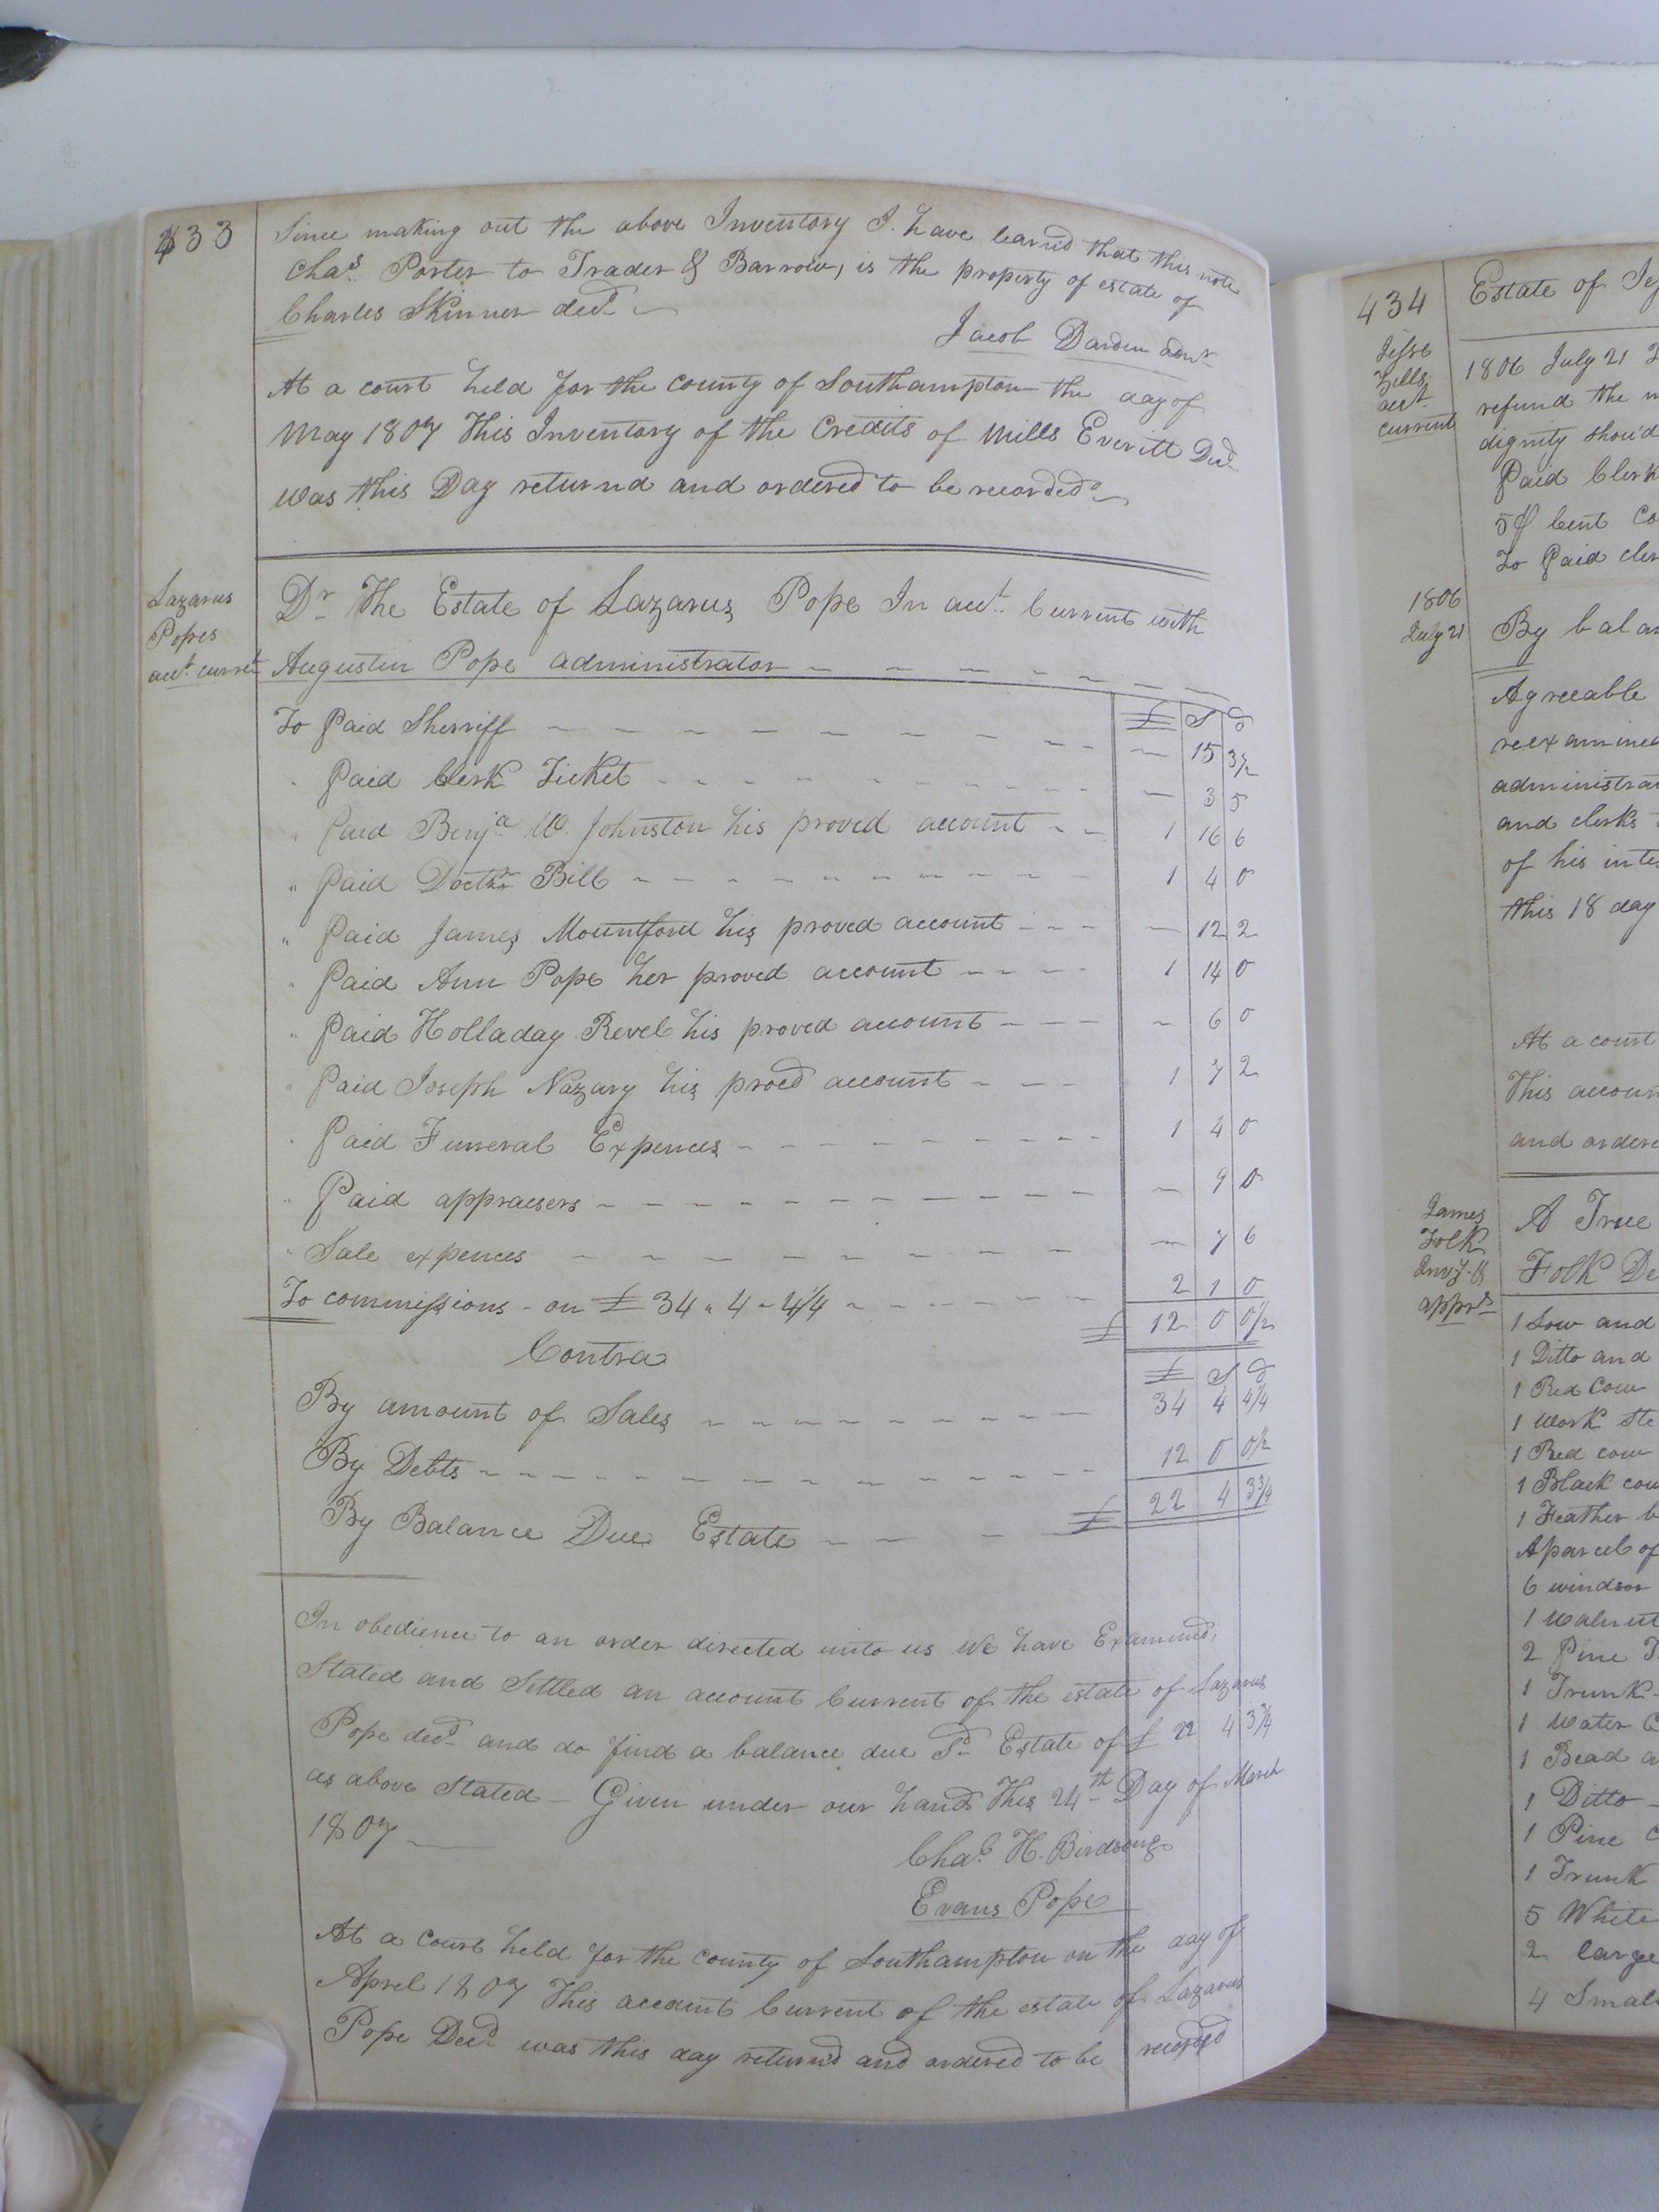 433
Since making out the above Inventory I. have learn'd that this note
Chas. Porter to Trader & Barrow, is the property of estate of
Charles Skinner decd.
Jacob Darden admr.
At a court held for the county of Southampton the day of
May 1807 This Inventory of the Credits of Mills Everitt Decd
was this Day returnd and ordered to be recorded.
Lazarus
Popes
acct. currt.
Dr. The Estate of Lazarus Pope In acct. Current with
Augustin Pope administrator
£ S D
To Paid Sherriff — 15 3½
" Paid Clerk Ticket — 3 5
" Paid Benja. W. Johnston his proved account 1 16 6
" Paid Doctor Bill 1 4 0
" Paid James Mountford his proved account — 12 2
" Paid Ann Pope her proved account 1 14 0
" Paid Holladay Revel his proved account — 6 0
" Paid Joseph Nazary his proed account 1 7 2
" Paid Funeral Expences 1 4 0
" Paid appraesers — 9 0
" Sale expences — 7 6
To commissions - on £ 34 " 4 - 4¼ 2 1 0
£ 12 0 0½
Contra
£ S D
By amount of Sales 34 4 4¼
By Debts 12 0 0½
By Balance Due Estate £ 22 4 3¾
In obedience to an order directed unto us We have Examined,
Stated and Settled an account Current of the estate of Lazarus
Pope decd. and do find a balance due Sd. Estate of £ 22 4 3¾
as above Stated - Given under our hands This 24th Day of March
1807
Chas. H. Birdsong
Evans Pope
At a Court held for the county of Southampton on the day of
April 1807 This account Current of the estate of Lazarus
Pope Decd was this day return'd and ordered to be recorded
434
Estate of
Jesse
acct.
current
1806 July 21
refund the
dignity shou'd
Paid Clerk
5 ₱ Cent
To Paid
1806
July 21
By
Agreeable
reexamined
and clerks
of his
this 18 day
At a court
This
and
James
Folk
apprs
A True
Folk
1 Sow and
1 Ditto and
1 Red Cow
1 Work
1 Red cow
1 Black
1 Feather
A parcel of
6 windsor
1 Walnut
2 Pine
1 Trunk
1 Water
1 Bead
1 Ditto
1 Pine
1 Trunk
5 White
2 large
4 Small